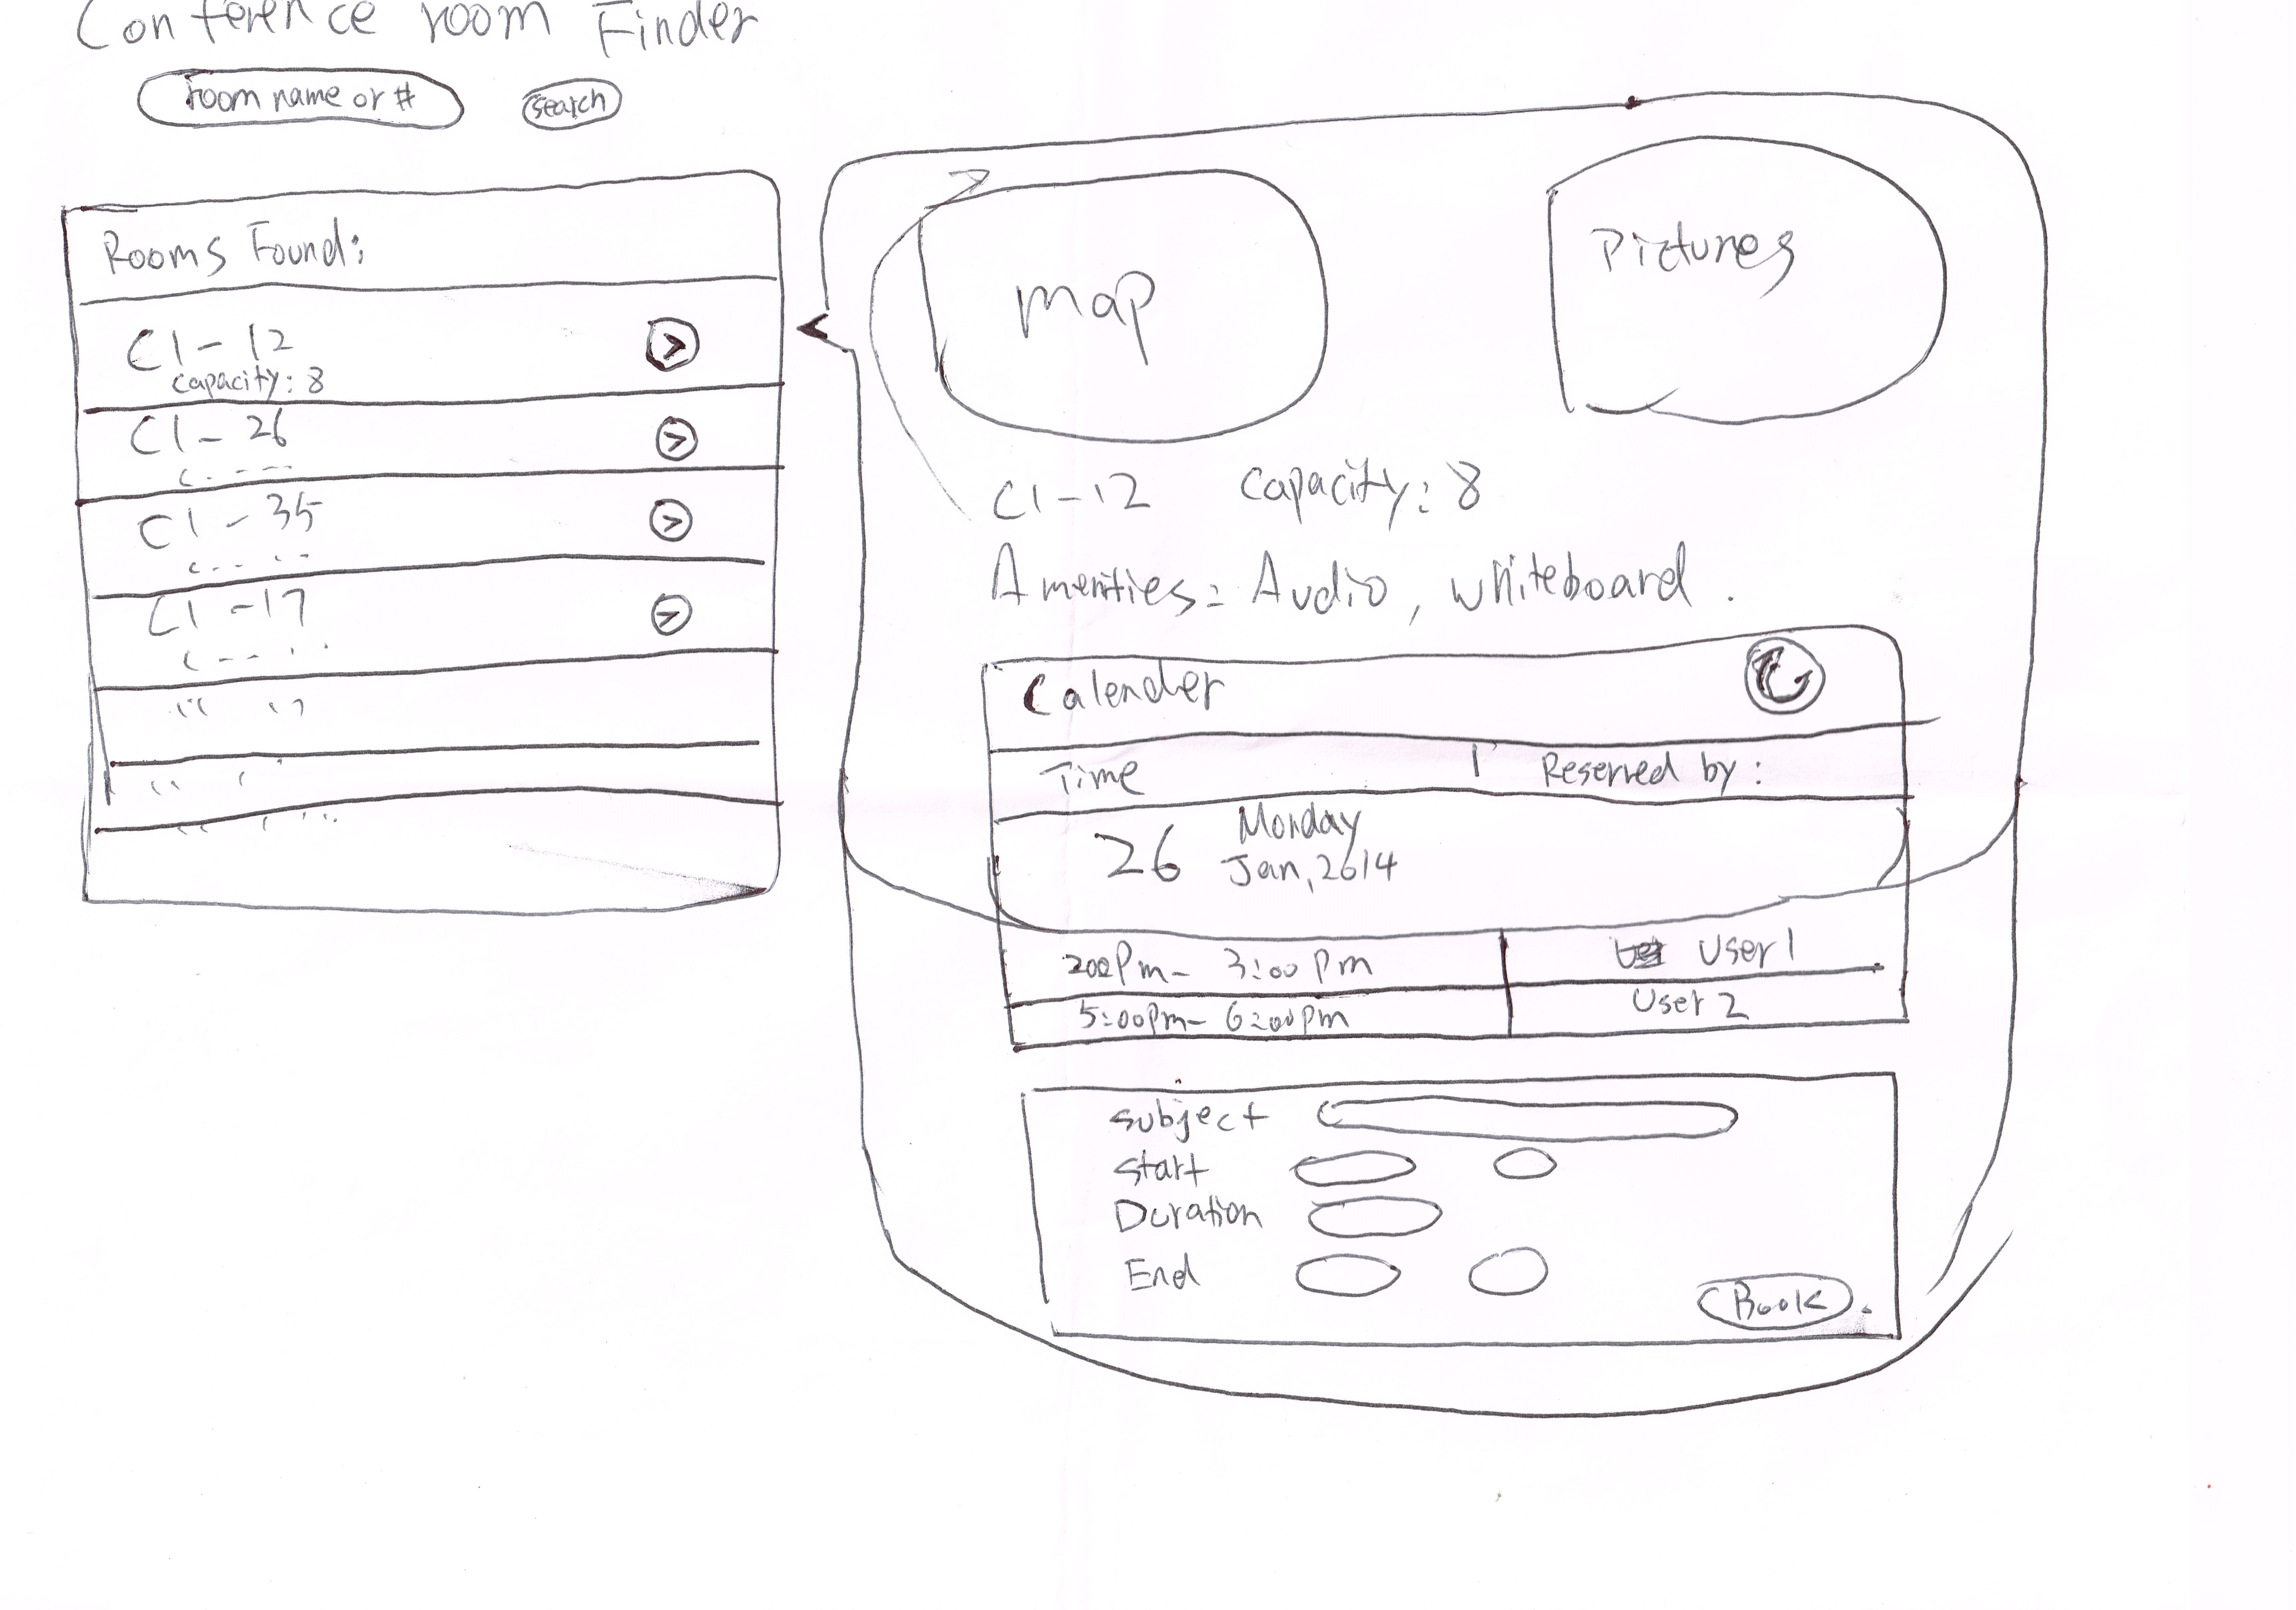 Conference room Finder
room name or #
search
Rooms Found:
C1-12
capacity: 8
C1-26
C1-35
C1-17
map
Pictures
C1-12 Capacity: 8
Amenities: Audio, whiteboard.
Calender
Time Reserved by:
26 Monday
Jan, 2014
200pm- 3:00pm User 1
5:00pm- 6:00pm User 2
subject
start
Duration
End
Book